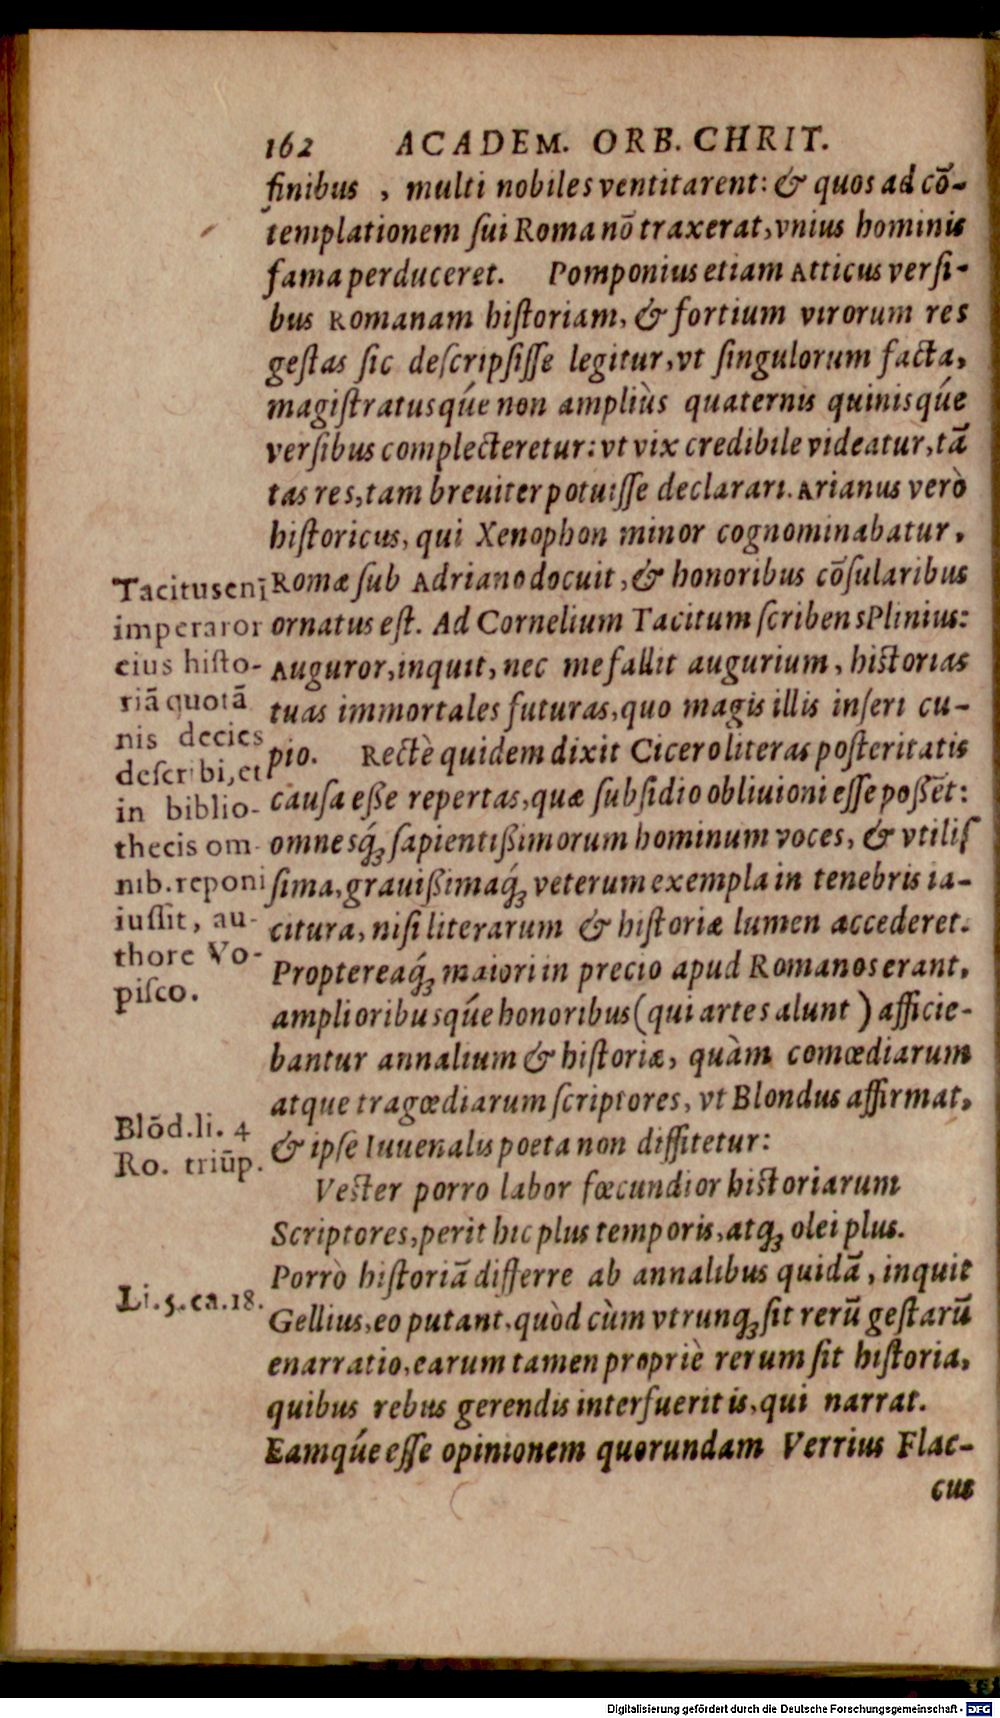 162 ACADEM. ORB. CHRIT.
finibus , multi nobiles ventitarent: & quos ad cō-
templationem ſui Roma nō traxerat, vnius hominis
fama perduceret. Pomponius etiam Atticus verſi-
bus Romanam hiſtoriam, & fortium virorum res
geſtas ſic deſcripſiſſe legitur, vt ſingulorum facta,
magiſtratusq́ue non ampliùs quaternis quinisq́ue
verſibus complecteretur: vt vix credibile videatur, tā
tas res, tam breuiter potuiſſe declarari. Arianus verò
hiſtoricus, qui Xenophon minor cognominabatur,
Romæ ſub Adriano docuit, & honoribus cōſularibus
ornatus eſt. Ad Cornelium Tacitum ſcribens Plinius:
Auguror, inquit, nec me fallit augurium, hiſtorias
tuas immortales futuras, quo magis illis inſeri cu-
pio. Rectè quidem dixit Cicero literas poſteritatis
cauſa eße repertas, quæ ſubſidio obliuioni eſſe poßēt:
omnesq́ꝫ ſapientißimorum hominum voces, & vtiliſ
ſima, grauißimaq́ꝫ veterum exempla in tenebris ia-
citura, niſi literarum & hiſtoriæ lumen accederet.
Proptereaq́ꝫ maiori in precio apud Romanos erant,
amplioribusq́ue honoribus (qui artes alunt) afficie-
bantur annalium & hiſtoriæ, quàm comœdiarum
atque tragœdiarum ſcriptores, vt Blondus affirmat,
& ipſe Iuuenalis poeta non diffitetur:
Veſter porro labor fœcundior hiſtoriarum
Scriptores, perit hic plus temporis, atqꝫ olei plus.
Porrò hiſtoriā differre ab annalibus quidā, inquit
Gellius, eo putant, quòd cùm vtrunqꝫ ſit rerū geſtarū
enarratio, earum tamen propriè rerum ſit hiſtoria,
quibus rebus gerendis interfuerit is, qui narrat.
Eamq́ue eſſe opinionem quorundam Verrius Flac-
cus
Tacitus enī
imperaror
eius hiſto-
riā quotā
nis decies
deſcribi, et
in biblio-
thecis om-
nib. reponi
iuſſit, au-
thore Vo-
piſco.
Blōd. li. 4
Ro. triūp.
Li. 5. ca. 18.
Digitalisierung gefördert durch die Deutsche Forschungsgemeinschaft - DFG